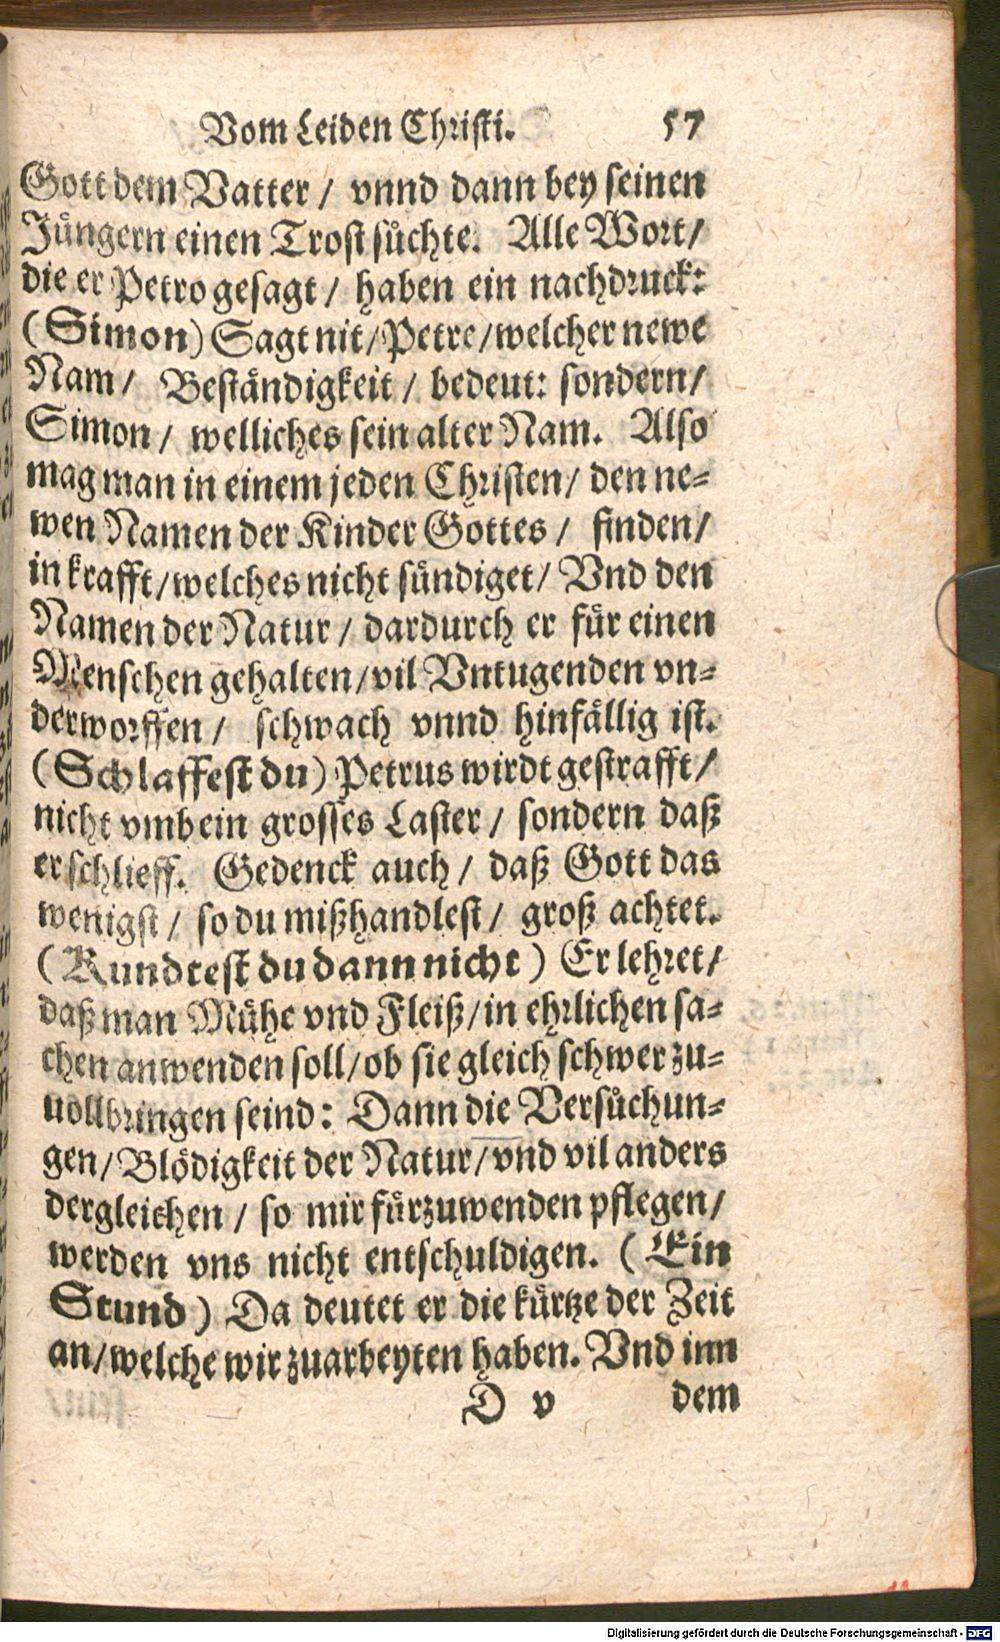 Vom Leiden Christi. 57
Gott dem Vatter / vnnd dann bey seinen
Jüngern einen Trost sůchte. Alle Wort/
die er Petro gesagt / haben ein nachdruck:
(Simon) Sagt nit/Petre/welcher newe
Nam / Beständigkeit / bedeut: sondern/
Simon / welliches sein alter Nam. Also
mag man in einem jeden Christen/ den ne-
wen Namen der Kinder Gottes / finden/
in krafft/welches nicht sündiget/ Vnd den
Namen der Natur / dardurch er für einen
Menschen gehalten/vil Vntugenden vn-
derworffen / schwach vnnd hinfällig ist.
(Schlaffest du) Petrus wirdt gestrafft/
nicht vmb ein grosses Laster / sondern daß
er schlieff. Gedenck auch / daß Gott das
wenigst / so du mißhandlest / groß achtet.
(Kundtest du dann nicht) Er lehret/
daß man Mühe vnd Fleiß/in ehrlichen sa-
chen anwenden soll/ob sie gleich schwer zu-
uollbringen seind: Dann die Versůchun-
gen/Blödigkeit der Natur/vnd vil anders
dergleichen / so mir fürzuwenden pflegen/
werden vns nicht entschuldigen. (Ein
Stund) Da deutet er die kürtze der Zeit
an/welche wir zuarbeyten haben. Vnd inn
D v dem
Digitalisierung gefördert durch die Deutsche Forschungsgemeinschaft - DFG